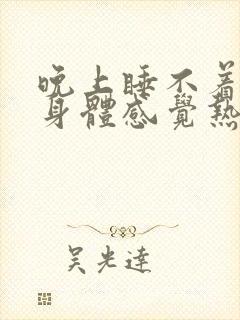 晚上睡不着
身體感覺熱
吴光達